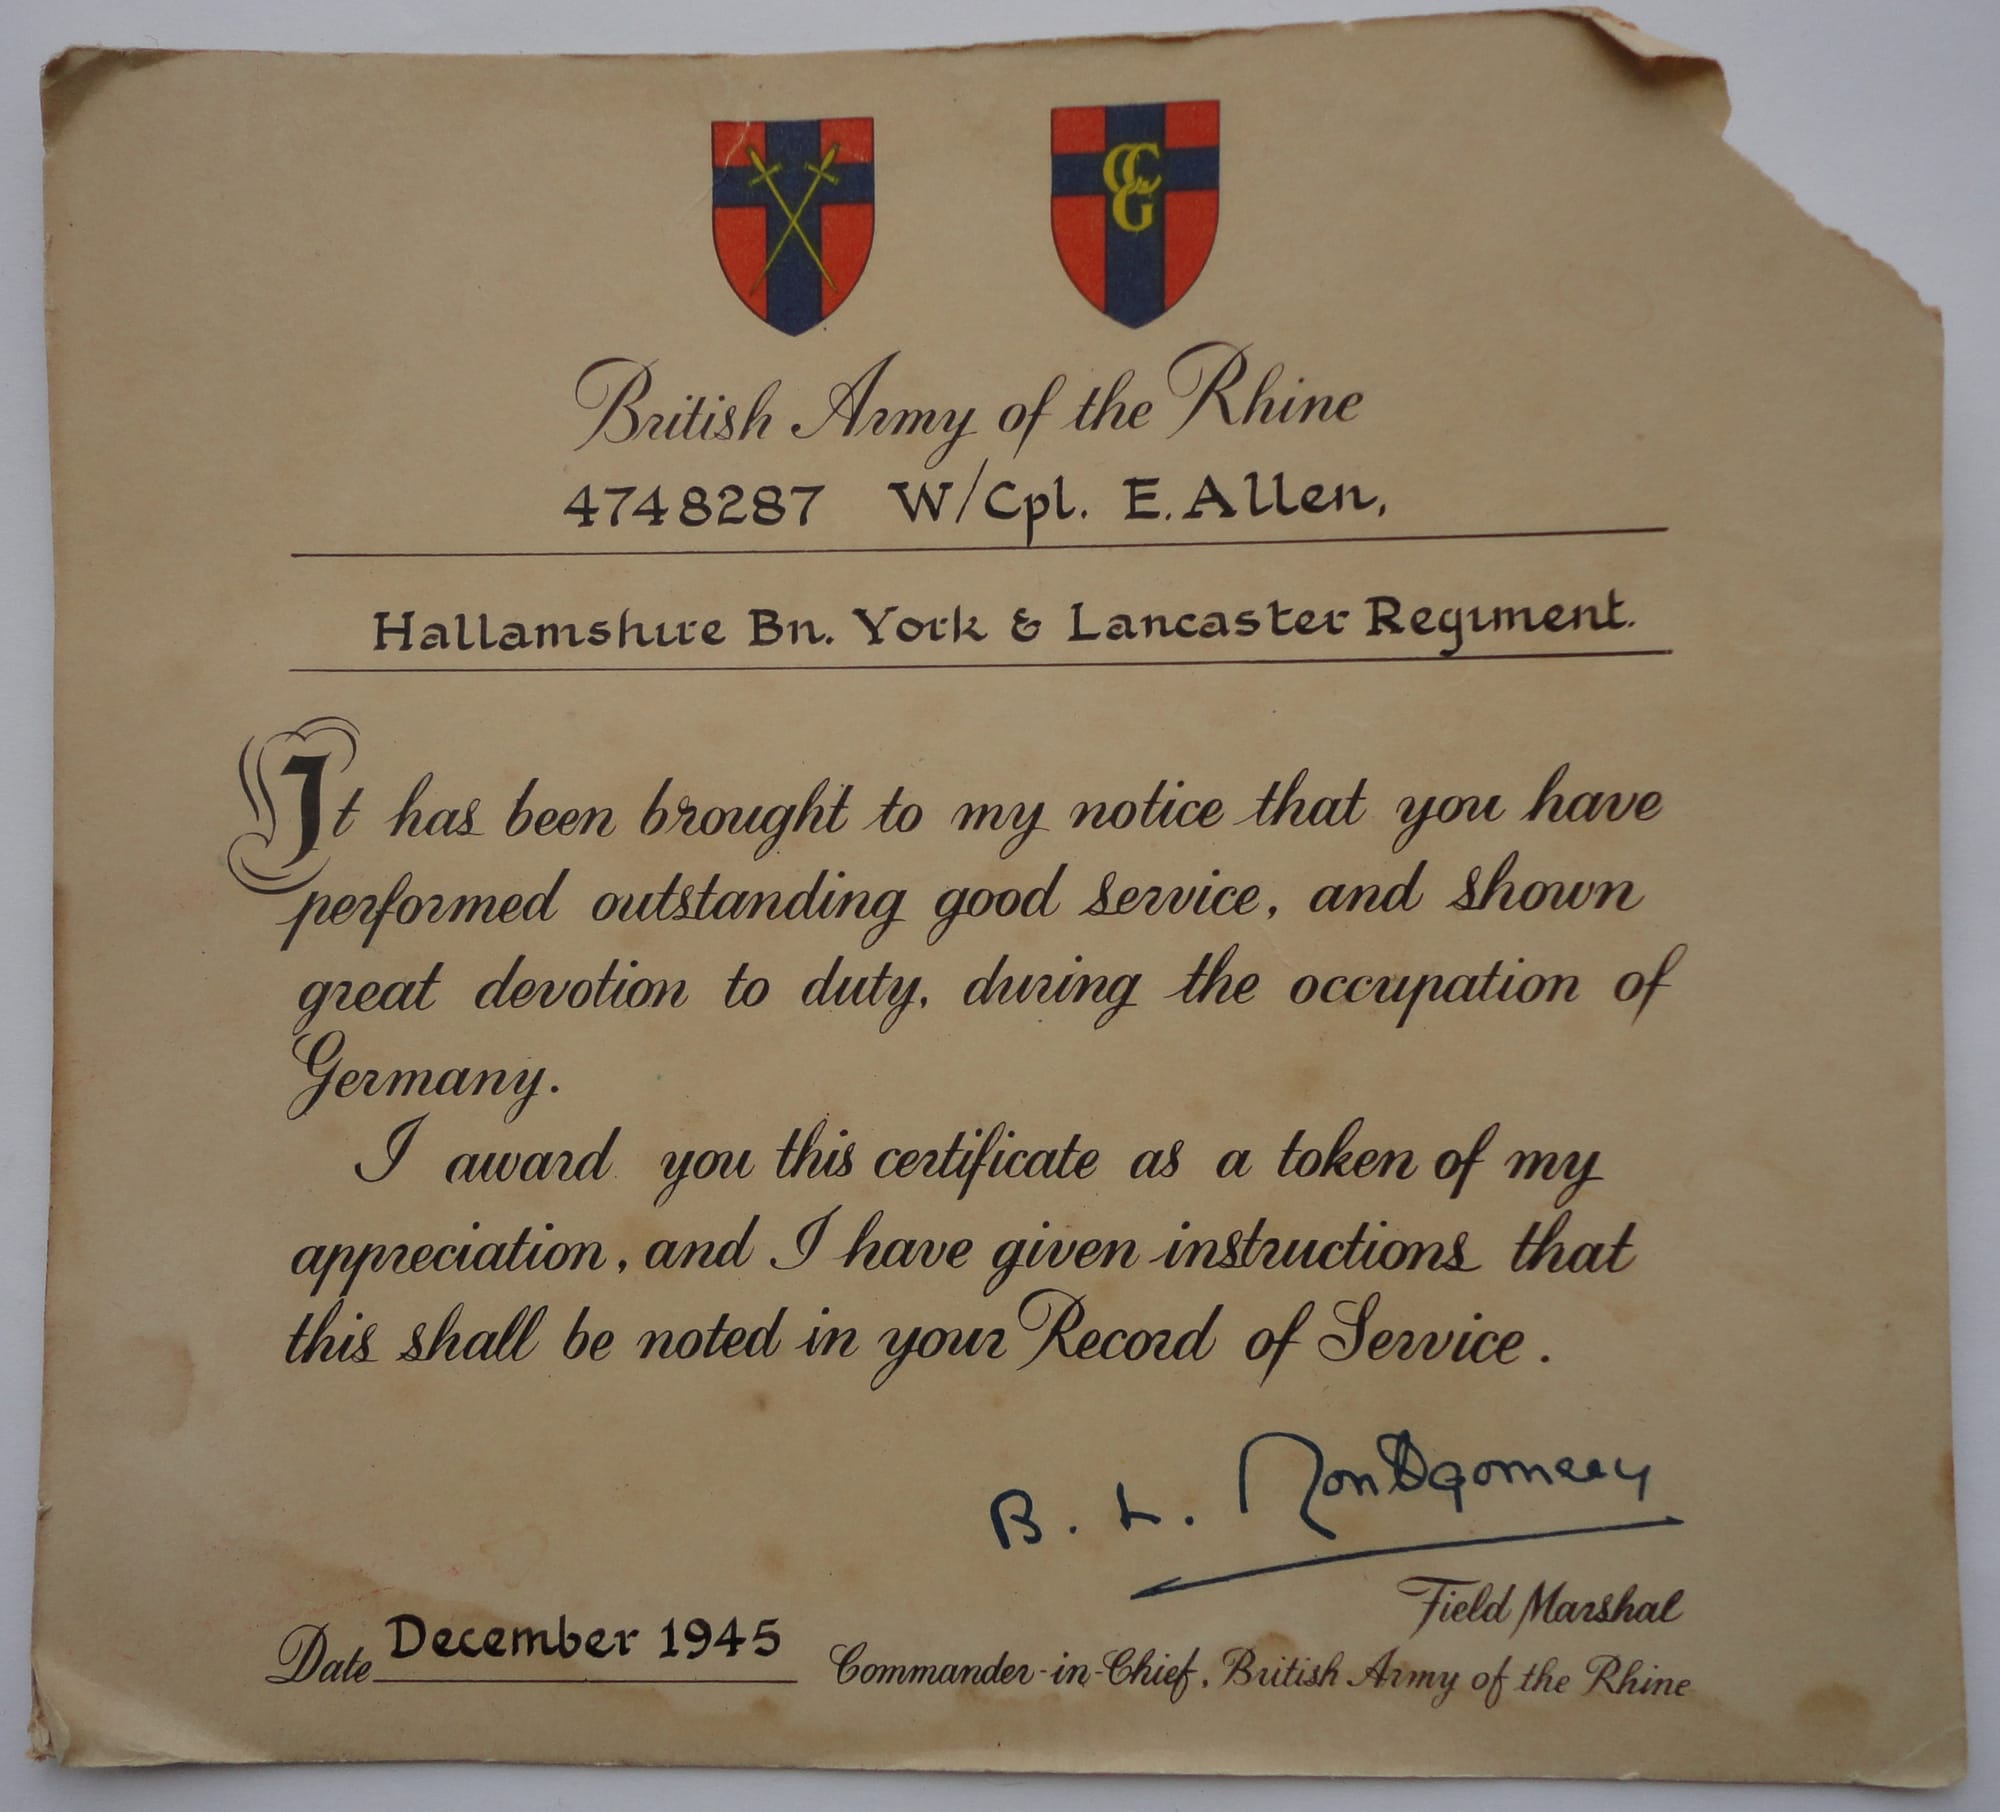 CCG
British Army of the Rhine
4748287 W/Cpl. E. Allen,
Hallamshire Bn. York & Lancaster Regiment.
It has been brought to my notice that you have
performed outstanding good service, and shown
great devotion to duty, during the occupation of
Germany.
I award you this certificate as a token of my
appreciation, and I have given instructions that
this shall be noted in your Record of Service.
B. L. Montgomery
Field Marshal
Date December 1945 Commander-in-Chief, British Army of the Rhine